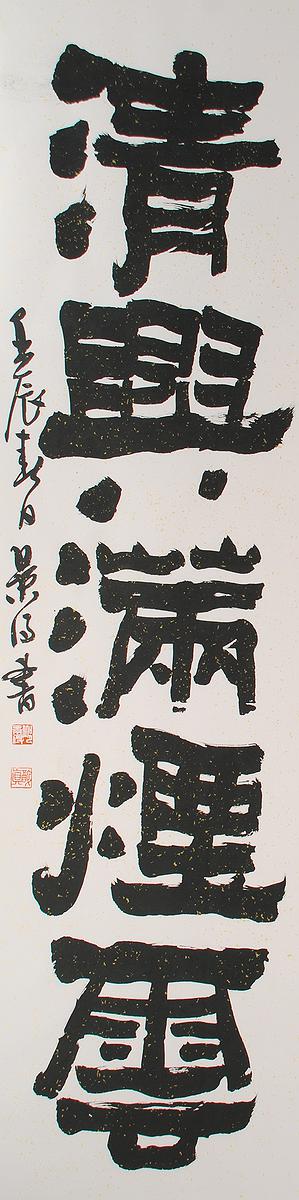 清興滿煙雲
壬辰春日景得書